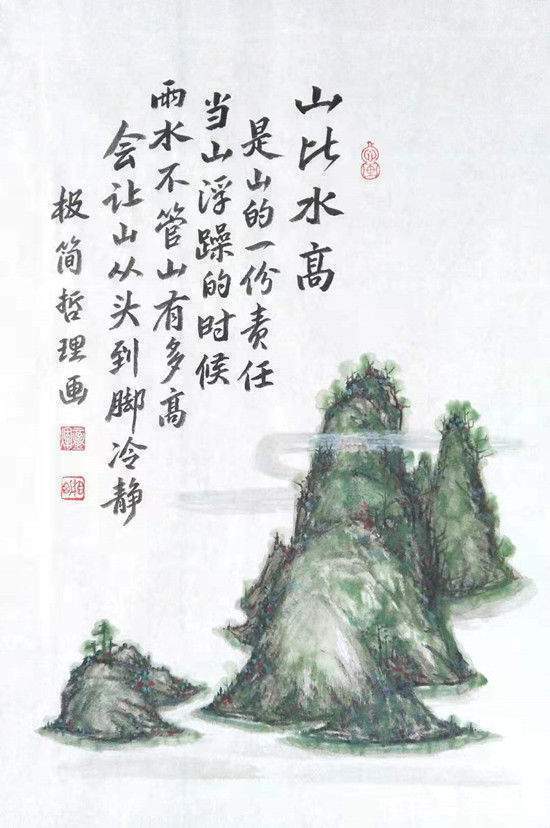 山比水高
是山的一份责任
当山浮躁的时候
雨水不管山有多高
会让山从头到脚冷静
极简哲理画